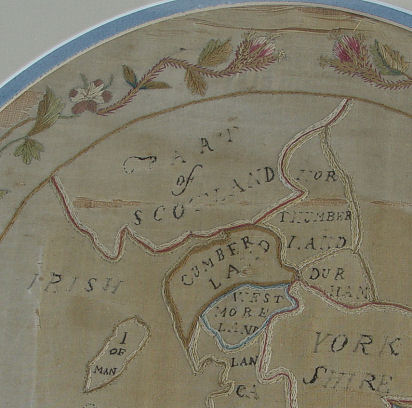 PART
of
SCOTLAND
NOR
THUMBER
LAND
CUMBERD
LA
DUR
HAM
IRISH
WEST
MORE
LAND
I
OF
MAN
YORK
SHIRE
LAN
CA